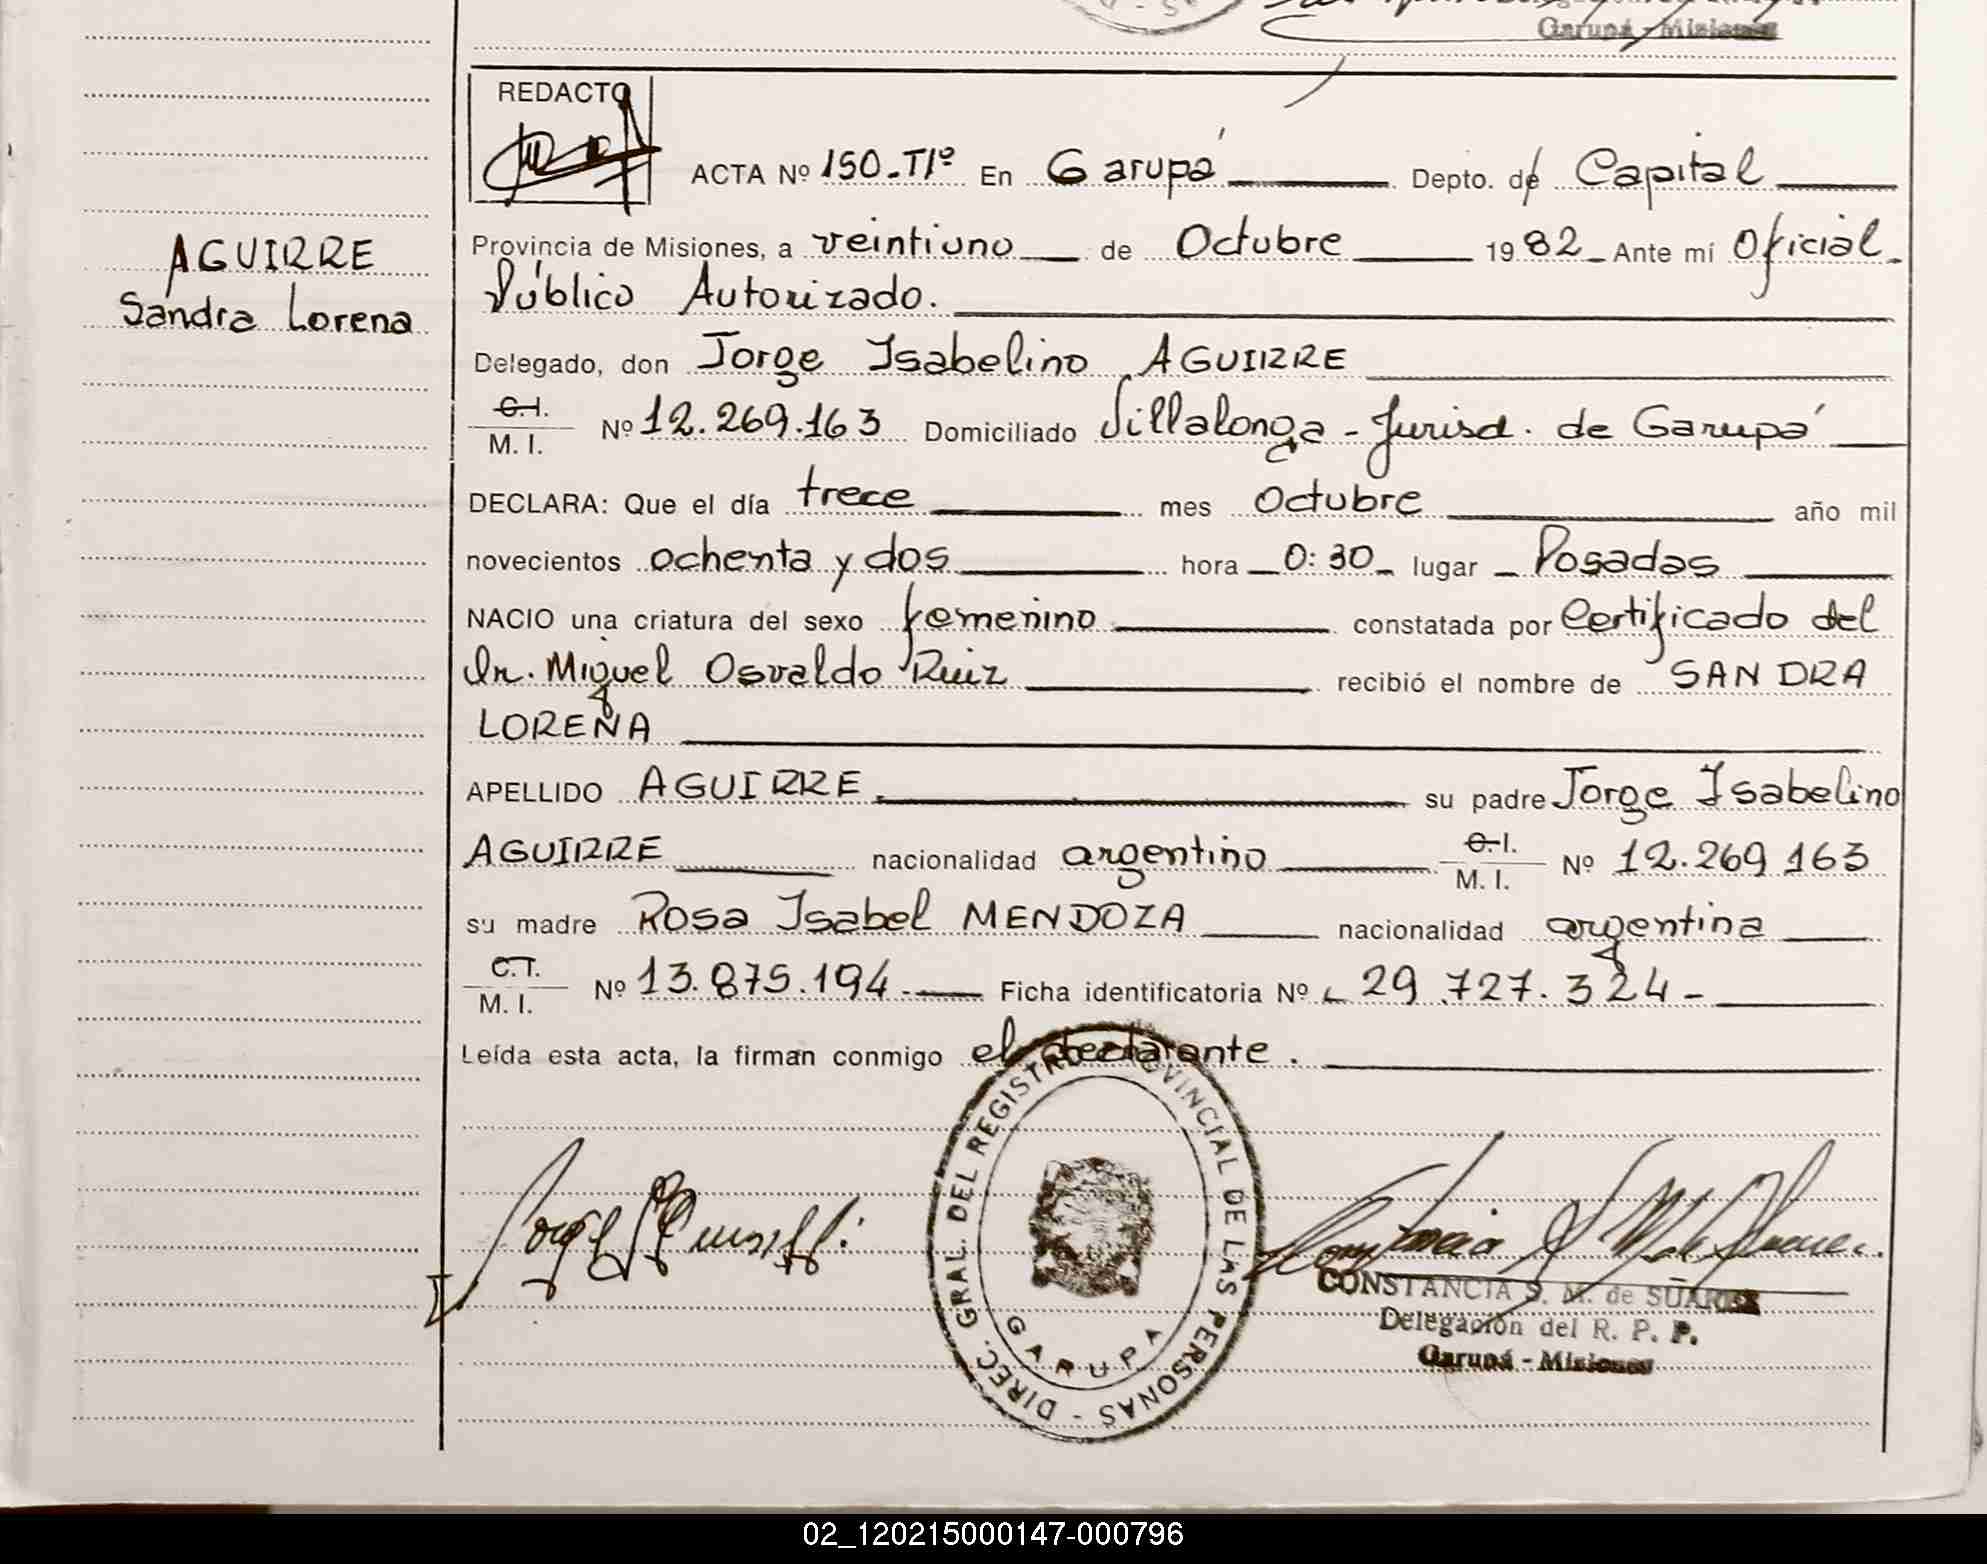 Garupá - Misiones
REDACTO
ACTA Nº 150-T1º En Garupá Depto. de Capital
AGUIRRE
Sandra Lorena
Provincia de Misiones, a veintiuno de Octubre 1982 Ante mí Oficial
Público Autorizado.
Delegado, don Jorge Isabelino AGUIRRE
C.I.
M. I. Nº 12.269.163 Domiciliado Villalonga - Jurisd. de Garupá
DECLARA: Que el día trece mes Octubre año mil
novecientos ochenta y dos hora 0:30 lugar Posadas
NACIO una criatura del sexo femenino constatada por Certificado del
Dr. Miguel Osvaldo Ruiz recibió el nombre de SANDRA
LORENA
APELLIDO AGUIRRE. su padre Jorge Isabelino
AGUIRRE nacionalidad argentino C.I.
M. I. Nº 12.269 163
su madre Rosa Isabel MENDOZA nacionalidad argentina
C.I.
M. I. Nº 13.875.194. Ficha identificatoria Nº 29.727.324-
Leída esta acta, la firman conmigo el declarante.
DIREC. GRAL. DEL REGISTRO PROVINCIAL DE LAS PERSONAS -
GARUPA
CONSTANCIA S. M. de SUAREZ
Delegación del R. P. P.
Garupá - Misiones
02_120215000147-000796